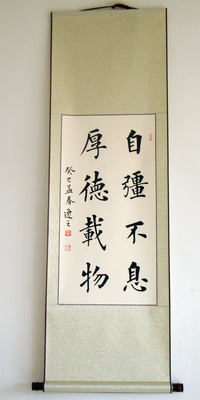 自彊不息
厚德載物
癸巳孟春